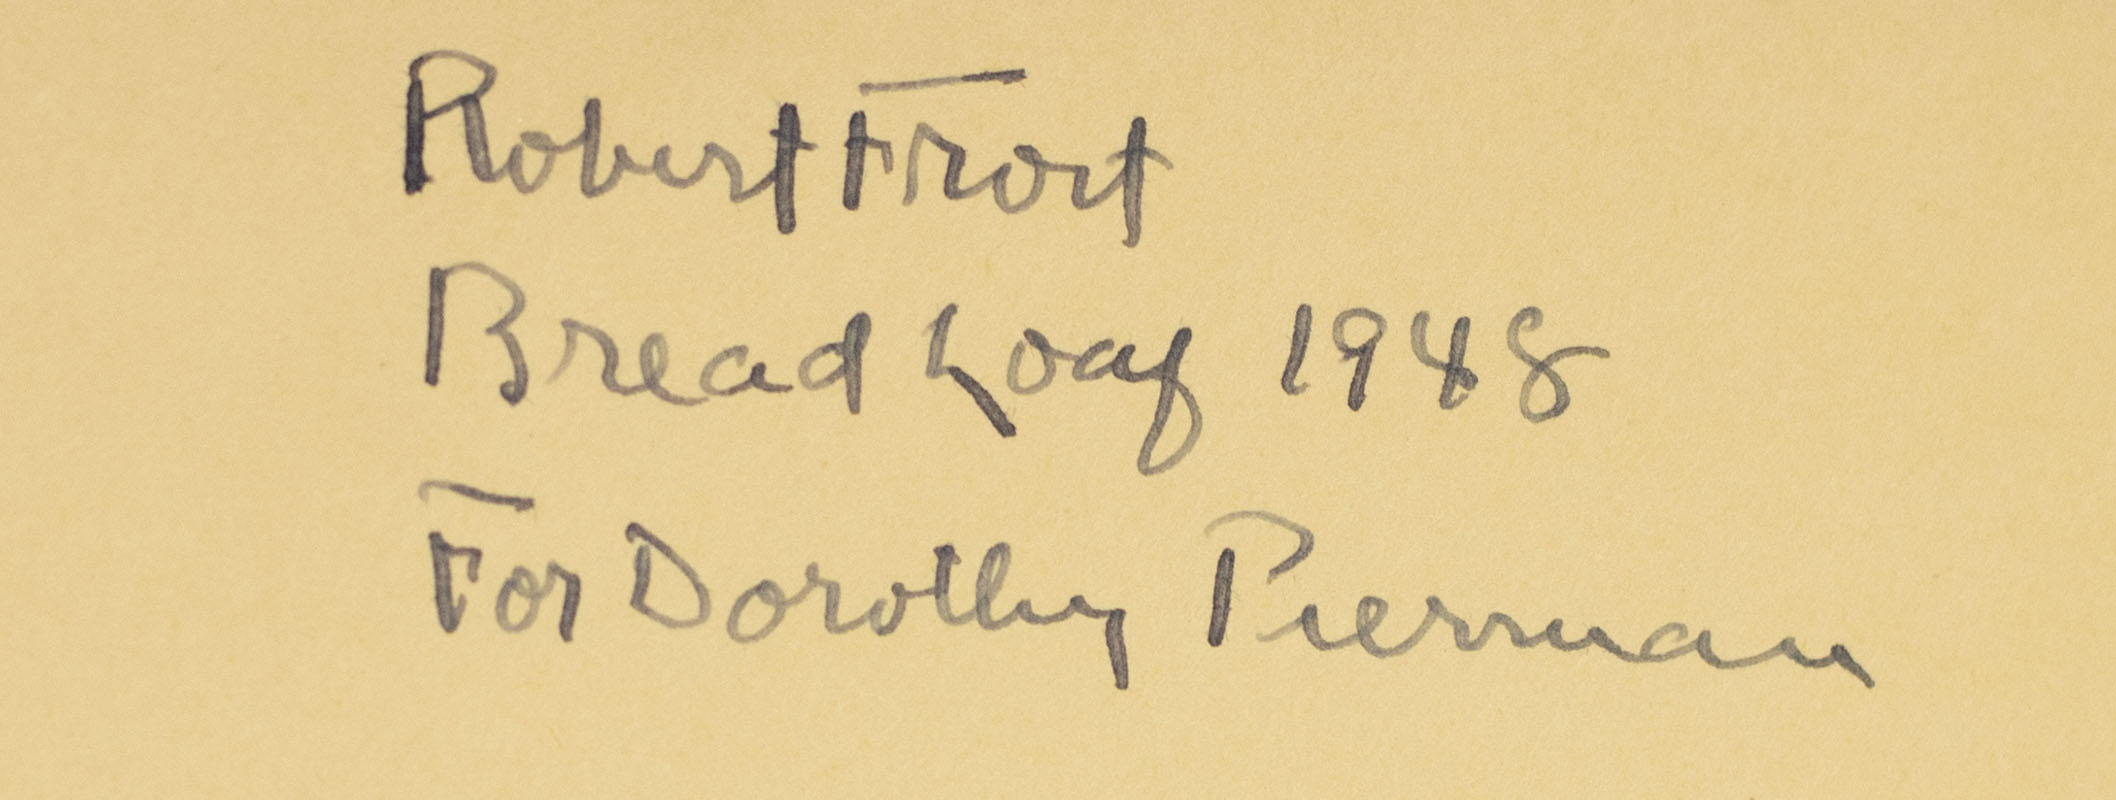 Robert Frost
Bread Loaf 1948
For Dorothy Pierman